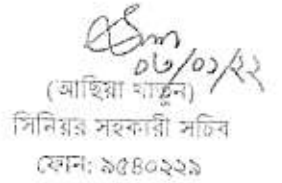 ০৬/০১/২২
(আছিয়া খাতুন)
সিনিয়র সহকারী সচিব
ফোন: ৯৫৪০২২৯